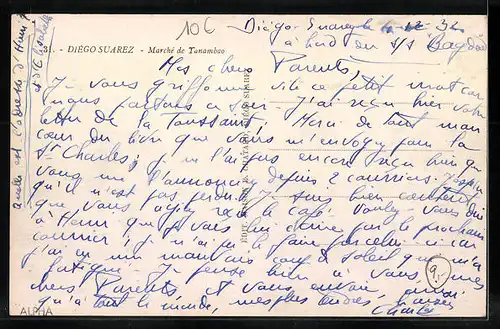 10 C
Diégo-Suarez le 32
à bord du s/s Bagdad
31. - DIÉGO SUAREZ - Marché de Tanambao
Mes chers Parents,
Je vous griffonne vite ce petit mot car
nous partons ce soir. J'ai reçu hier votre
lettre de la Toussaint. Merci de tout mon
cœur du lien que vous m'envoyez pour la
St Charles; je ne l'ai pas encore reçu bien que
vous me l'annonciez depuis 2 courriers. J'espère
qu'il n'est pas perdu. Je suis bien content
que vous ayez reçu le café. Voulez vous dire
à Henri que je vais lui écrire par le prochain
courrier; je n'ai pu le faire par celui-ci car
j'ai eu un mauvais coup de soleil qui m'a
fatigué. Je pense bien à vous mes
chers Parents et vous envoie, ainsi
qu'à tout le monde, mes plus tendres baisers
Charles
quelle est l'adresse d'Henri
et d'Elisabeth
EDIT. CHATARD, DIÉGO SUAREZ
9,-
ALPHA